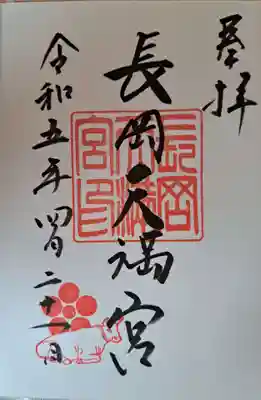 奉拝
長岡天満宮
長岡天満宮印
令和五年四月二十一日